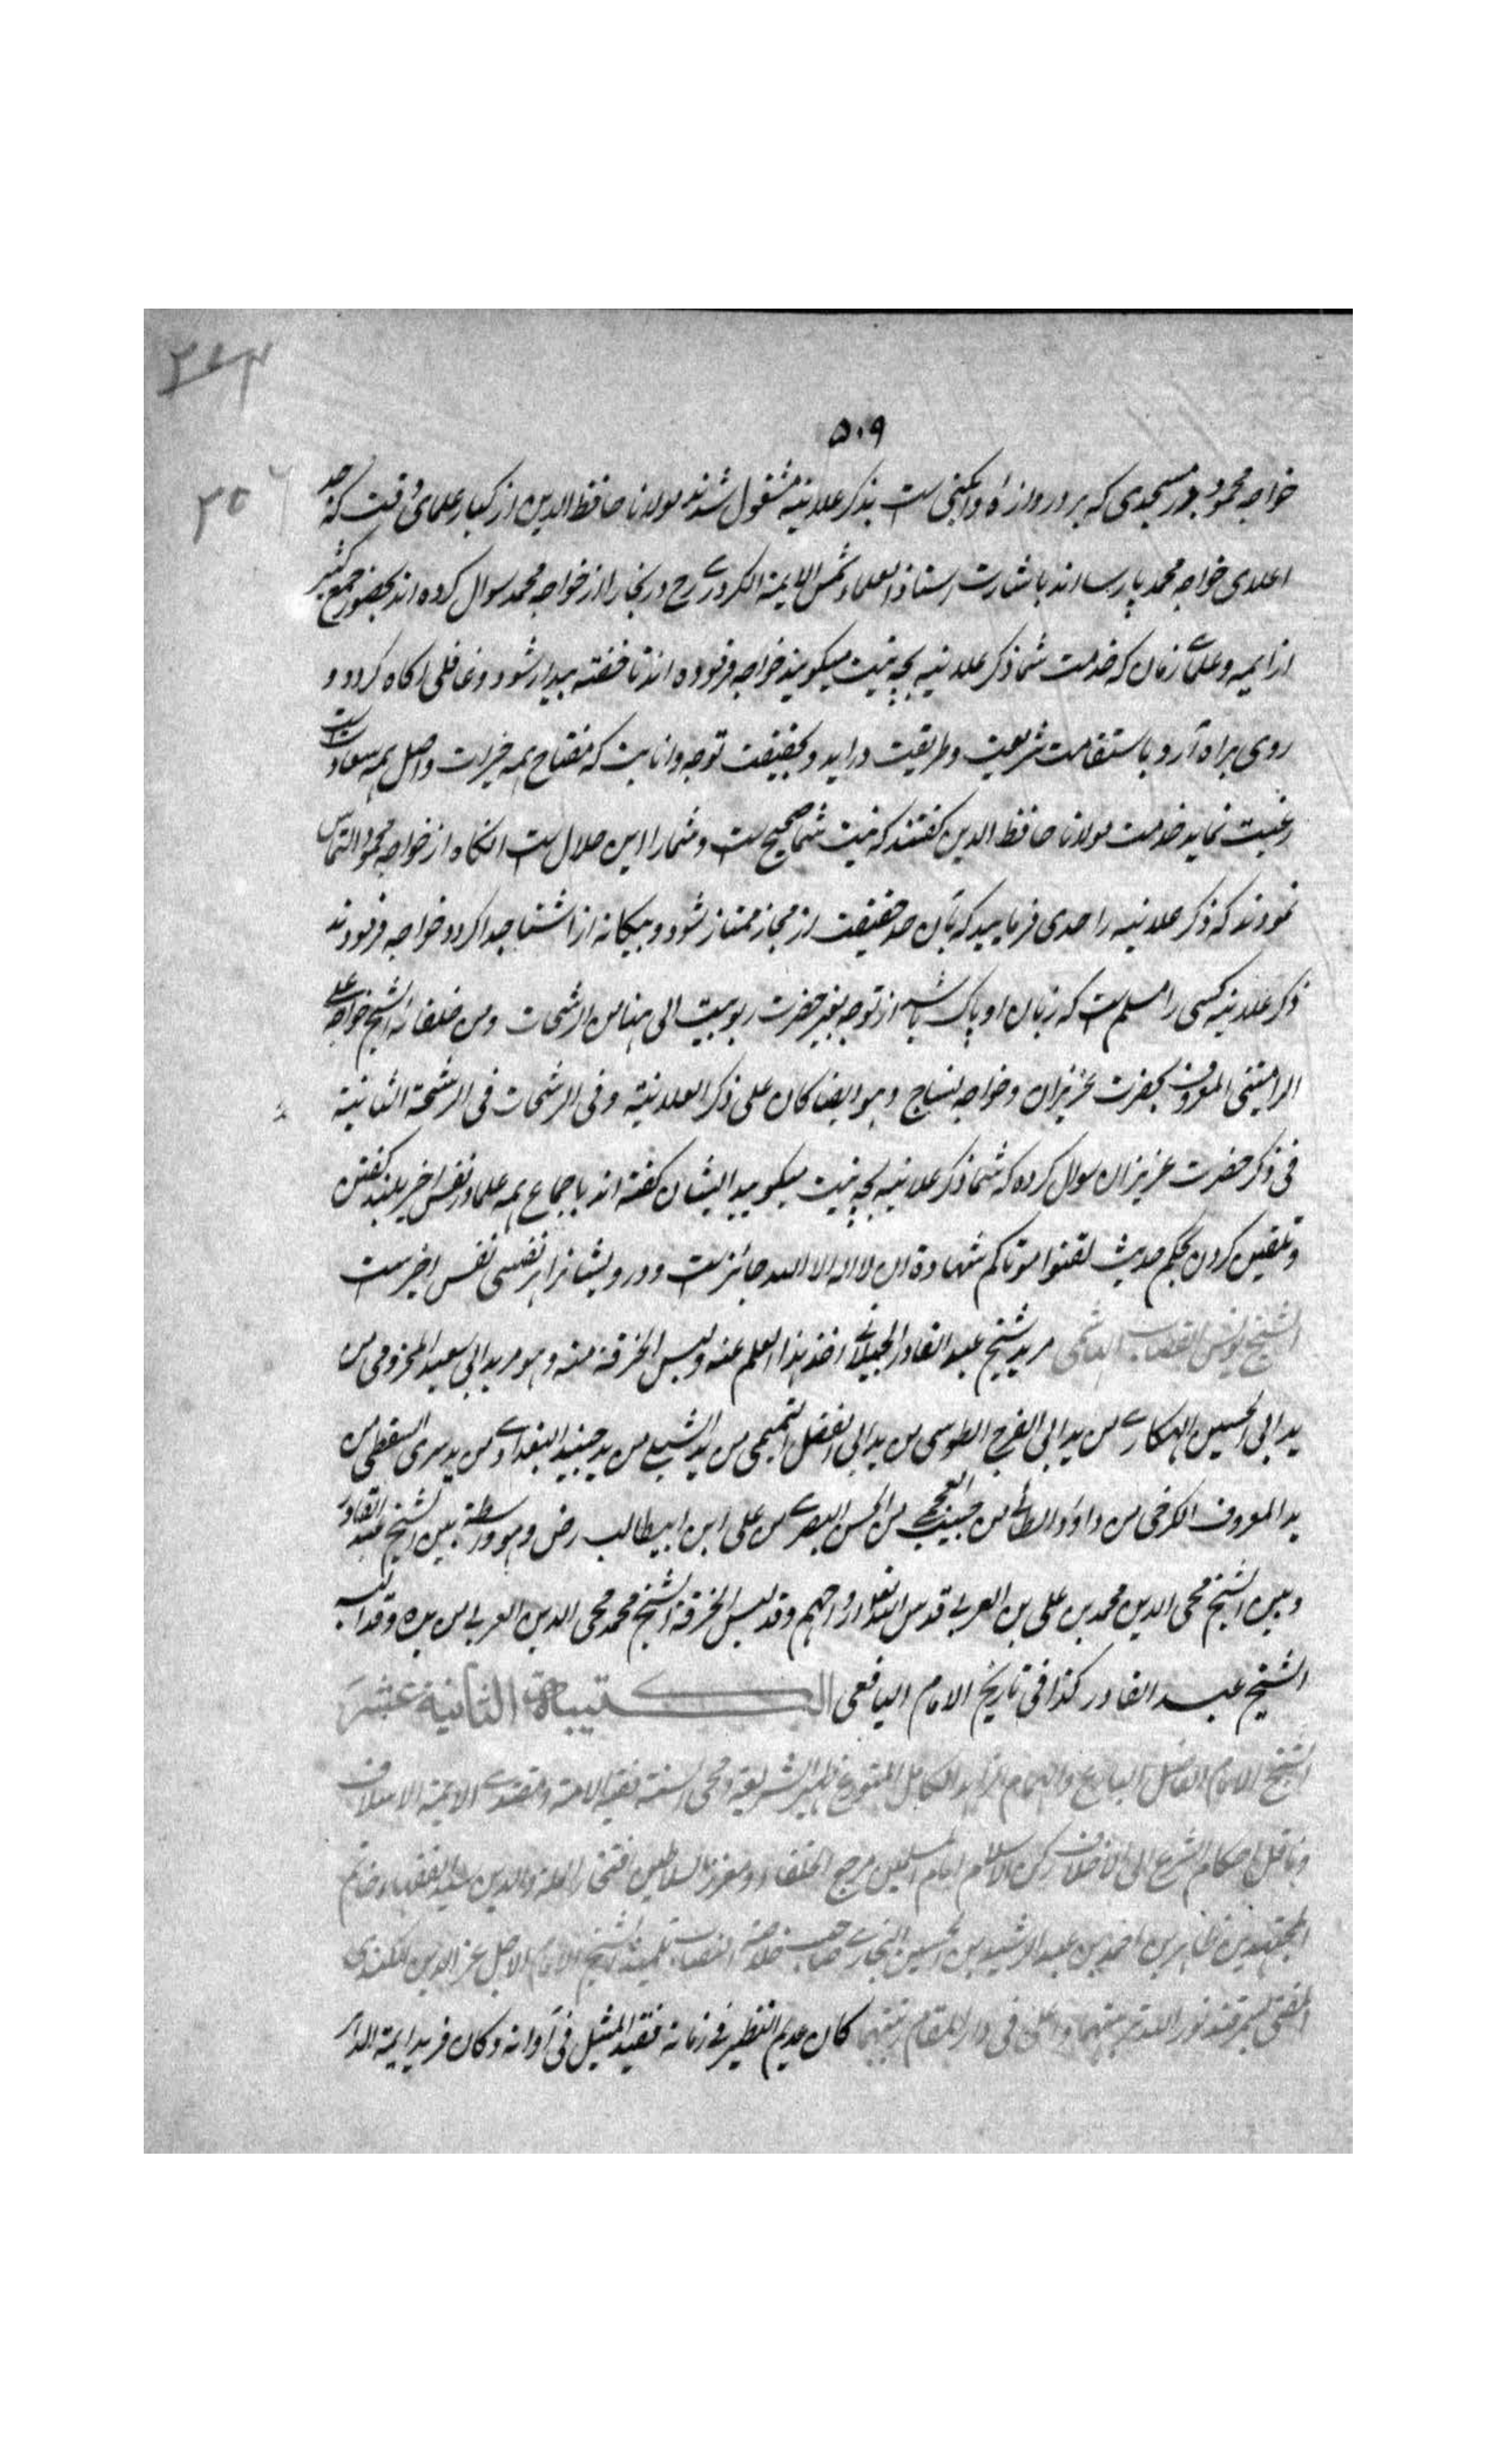 ۵۰۹
خواجه محمود در مسجدی که بر در دروازهٔ وابکنی است بذکر علانیه مشغول شدند مولانا حافظ الدین از کبار علمای وقت که جد
اعلای خواجه محمد پارسا اند باشارت استاذ العلماء شمس الایمة الکردری رح در بخارا از خواجه محمد سوال کرده اند بحضور جمع کثیر
از ایمه و علمای زمان که خدمت شما ذکر علانیه بچه نیت میکویند خواجه فرموده اند تا خفته بیدار شود و غافلی اکاه کردد و
روی براه آرد باستقامت شریعت و طریقت دراید و بحقیقت توجه و انابت که مفتاح همه خیرات و اصل همه سعادت است
رغبت نماید خدمت مولانا حافظ الدین کفتند که نیت شما صحیح است و شما را این حلال است انکاه از خواجه محمود التماس
نمودند که ذکر علانیه را حدی فرمایید که بآن حد حقیقت از مجاز ممتاز شود و بیکانه از اشنا جدا کردد خواجه فرمودند
ذکر علانیه کسی را مسلم است که زبان او پاک باشد از توجه بغیر حضرت ربوبیت الی هنا من الرشحات ومن خلفائه الشیخ خواجه علی
الرامیتنی المعروف بحضرت عزیزان وخواجه نساج وهو ایضا کان علی ذکر العلانیة وفی الرشحات فی الرشحة الثانیة
فی ذکر حضرت عزیزان سوال کرده که شما ذکر علانیه بچه نیت میکویید ایشان کفته اند باجماع همه علما در نفس اخیر بلند کفتن
و تلقین کردن بحکم حدیث لقنوا موتاکم شهادة ان لا اله الا الله جائز است و درویشانرا هر نفسی نفس اخیر است
الشیخ یونس القصاب الهاشمی مرید شیخ عبد القادر الجیلانی اخذ هذا العلم عنه ولبس الخرقة منه وهو مرید ابی سعید المخزومی من
ید ابی الحسین الهکاری من ید ابی الفرج الطوسی من ید ابی الفضل التمیمی من ید الشبلی من ید جنید البغدادی من ید سری السقطی من
ید المعروف الکرخی من داود الطائی من حبیب العجمی من الحسن البصری من علی ابن ابیطالب رض وهو واسطة بین الشیخ عبد القادر
وبین الشیخ محی الدین محمد بن علی بن العربی قدس الله تعالی ارواحهم وقد لبس الخرقة الشیخ محمد محی الدین العربی من یده وقد البسه
الشیخ عبد القادر کذا فی تاریخ الامام الیافعی الکتیبة الثانیة عشر
الشیخ الامام الفاضل البارع والهمام الزاهد الکامل المتورع ظهیر الشریعة ومحی السنة بقیة الامة ومقتدی الایمة الاسلاف
وناقل احکام الشرع الی الاخلاف رکن الاسلام امام المسلمین مرجع الخلفاء ومعزز السلاطین افتخار الملة والدین سید الفقهاء خاتم
المجتهدین طاهر بن احمد بن عبد الرشید بن الحسین البخاری صاحب خلاصة الفتاوی تلمیذ الشیخ الامام الاجل عز الدین الکندی
المفتی بسمرقند نور الله تربتهما واعلی فی دار المقام رتبتهما کان عدیم النظیر فی زمانه فقید المثیل فی آوانه وکان فرید ایمة الدهر